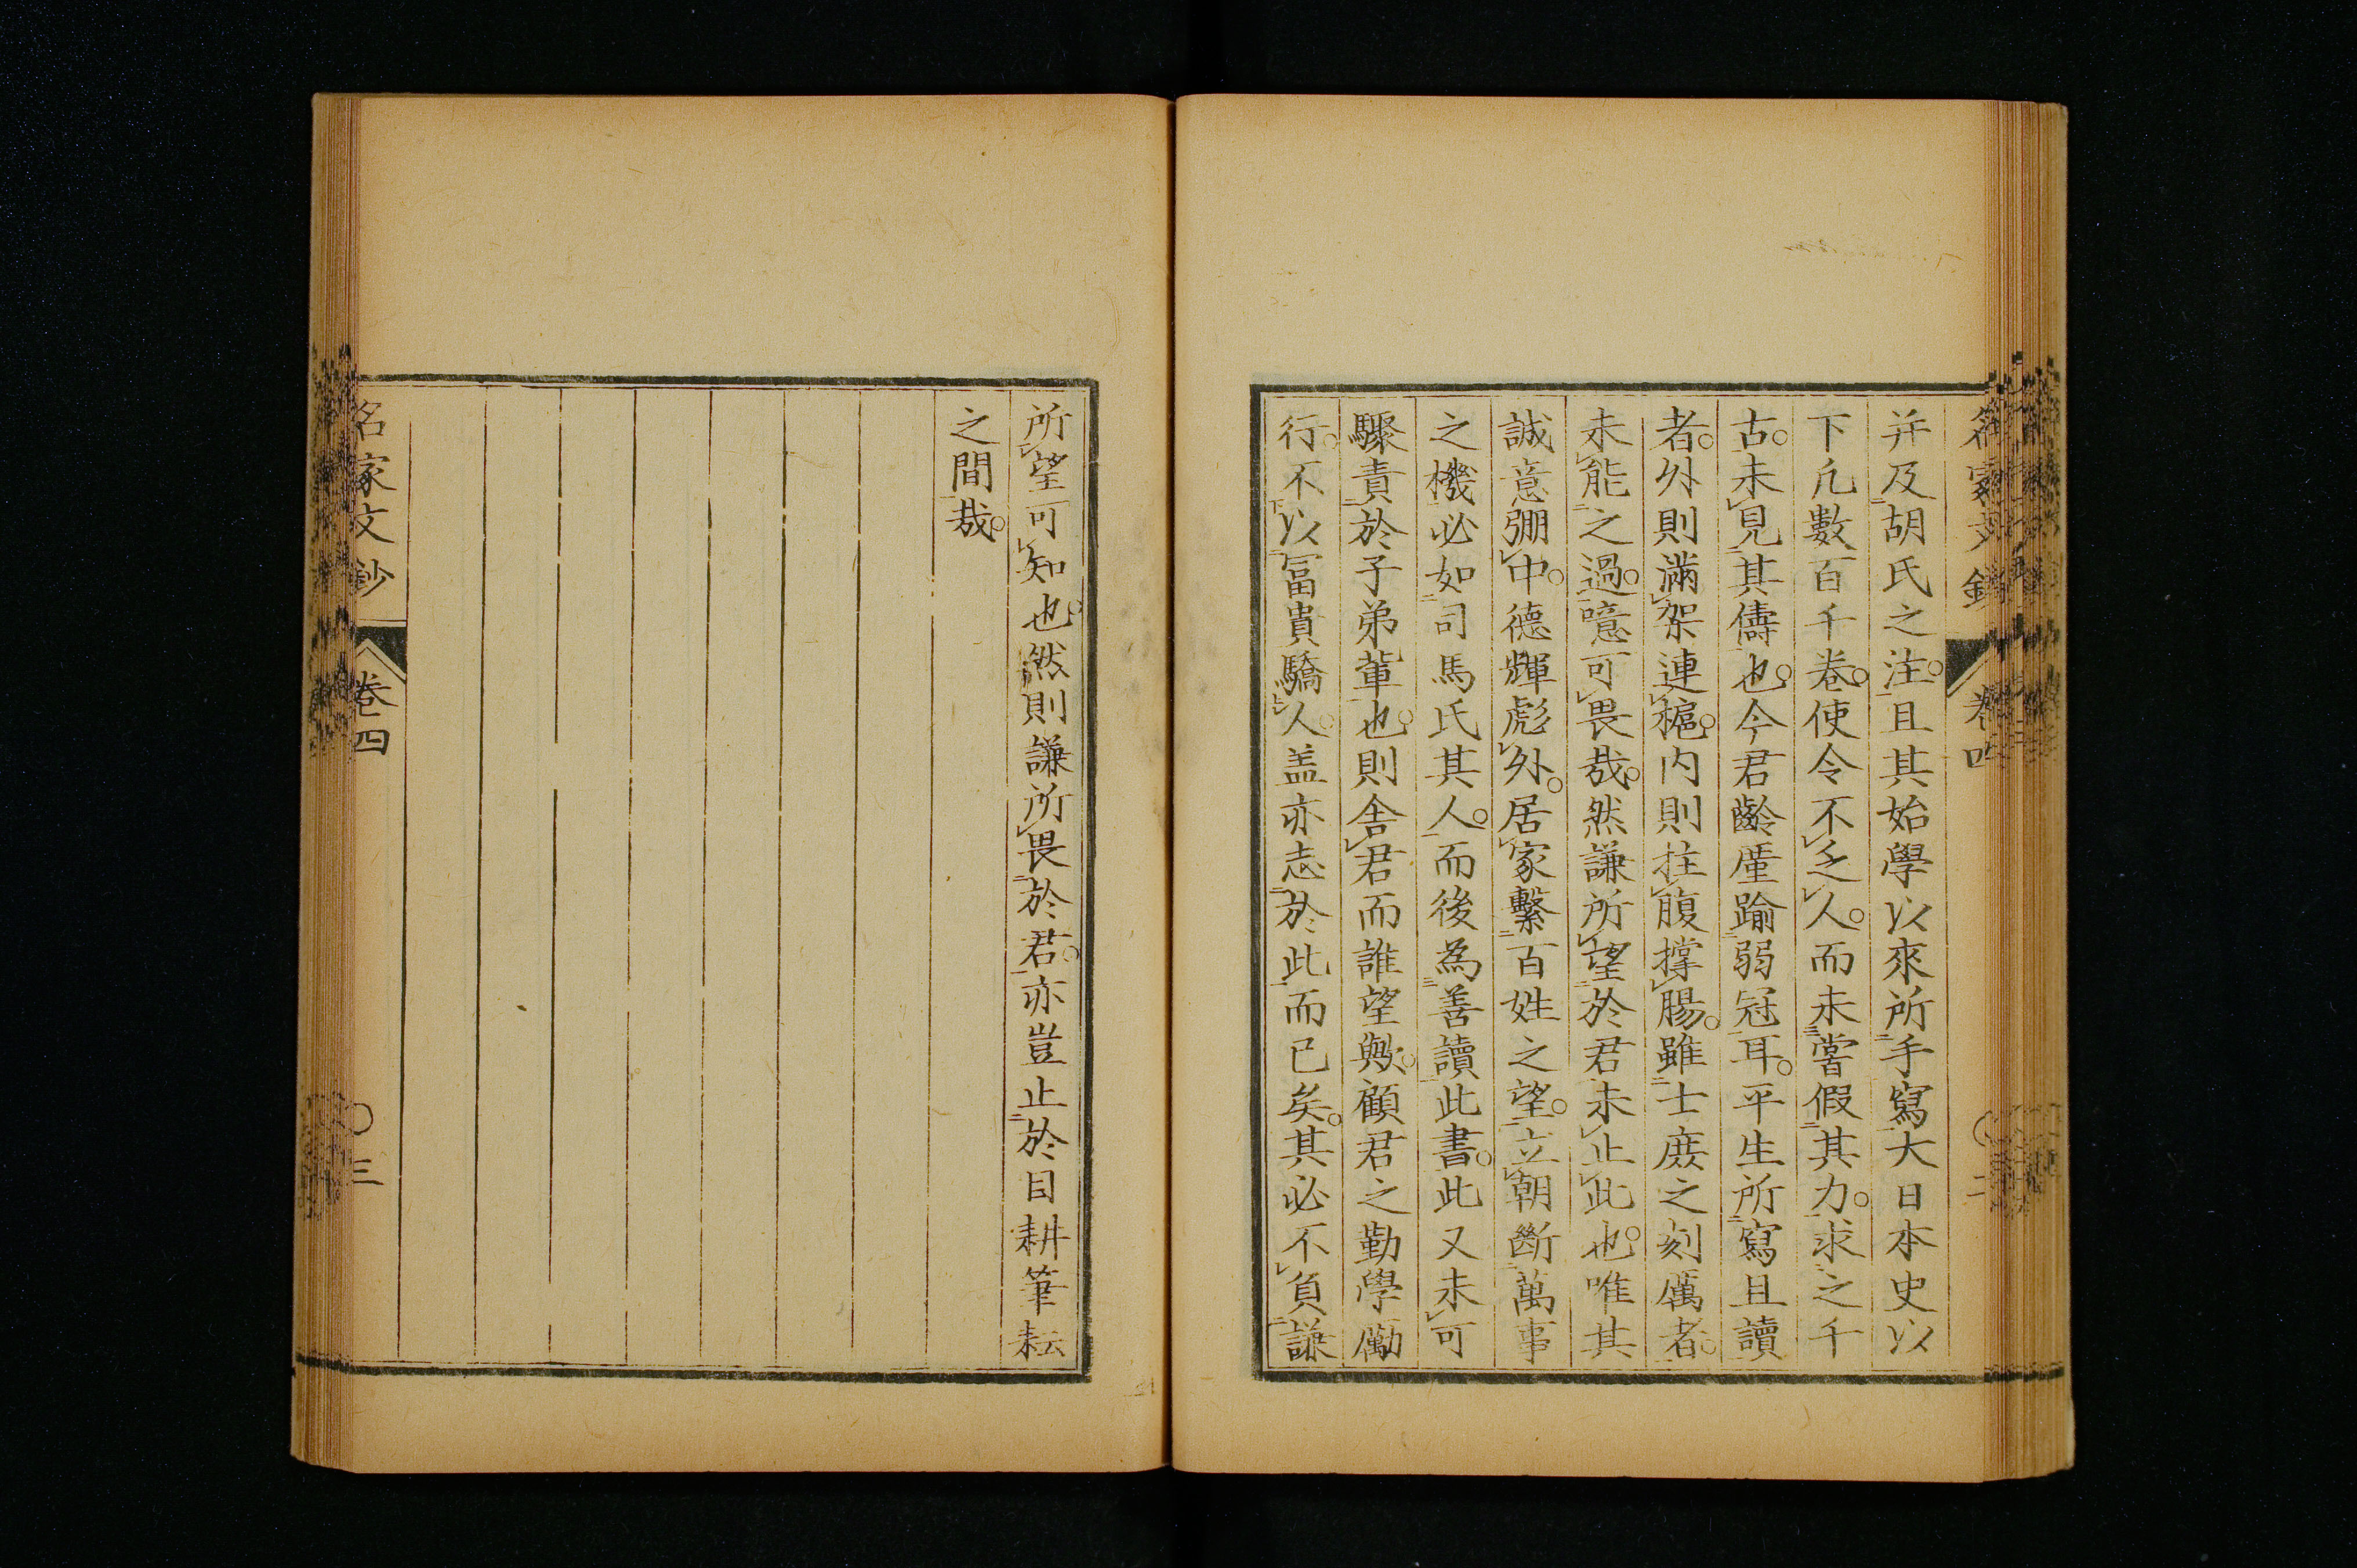 名家文鈔 卷四 二
并及胡氏之注。且其始學以來所手寫大日本史以
下凡數百千卷。使令不乏人。而未嘗假其力。求之千
古。未見其儔也。今君齡廑踰弱冠耳。平生所寫且讀
者。外則滿架連櫎。內則拄腹撐腸。雖士庶之刻厲者。
未能之過。噫可畏哉。然謙所望於君未止此也。唯其
誠意弸中。德輝彪外。居家繫百姓之望。立朝斷萬事
之機必如司馬氏其人。而後為善讀此書。此又未可
驟責於子弟輩也。則舍君而誰望歟。顧君之勤學勵
行。不以冨貴驕人。盖亦志於此而已矣。其必不負謙
所望可知也。然則謙所畏於君。亦豈止於目耕筆耘
之間哉。
名家文鈔 卷四 三